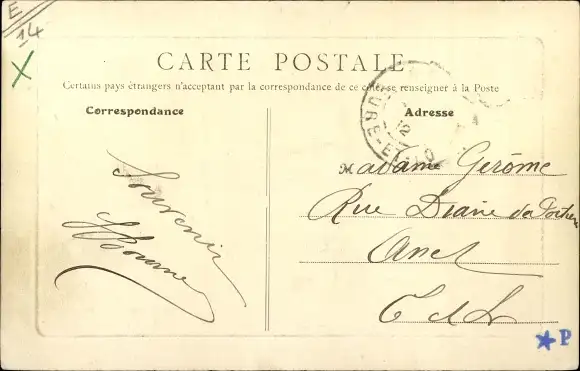 E
14
X
CARTE POSTALE
Certains pays étrangers n'acceptant par la correspondance de ce côté se renseigner à la Poste
Correspondance
Adresse
URE-ET
Madame Gerôme
Rue Diane de
Anet
E d L
Souvenir
★ P